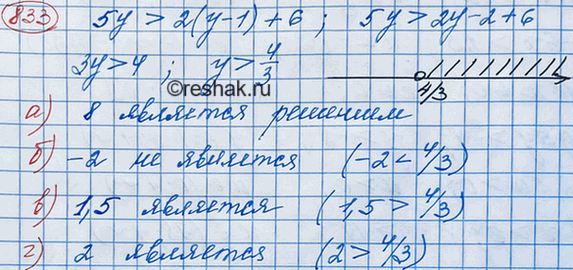 833 5y > 2(y-1)+6 ; 5y > 2y-2+6
3y>4 ; y > 4/3
©reshak.ru
4/3
а) 8 является решением
б) -2 не является (-2 < 4/3)
в) 1,5 является (1,5 > 4/3)
г) 2 является (2 > 4/3)